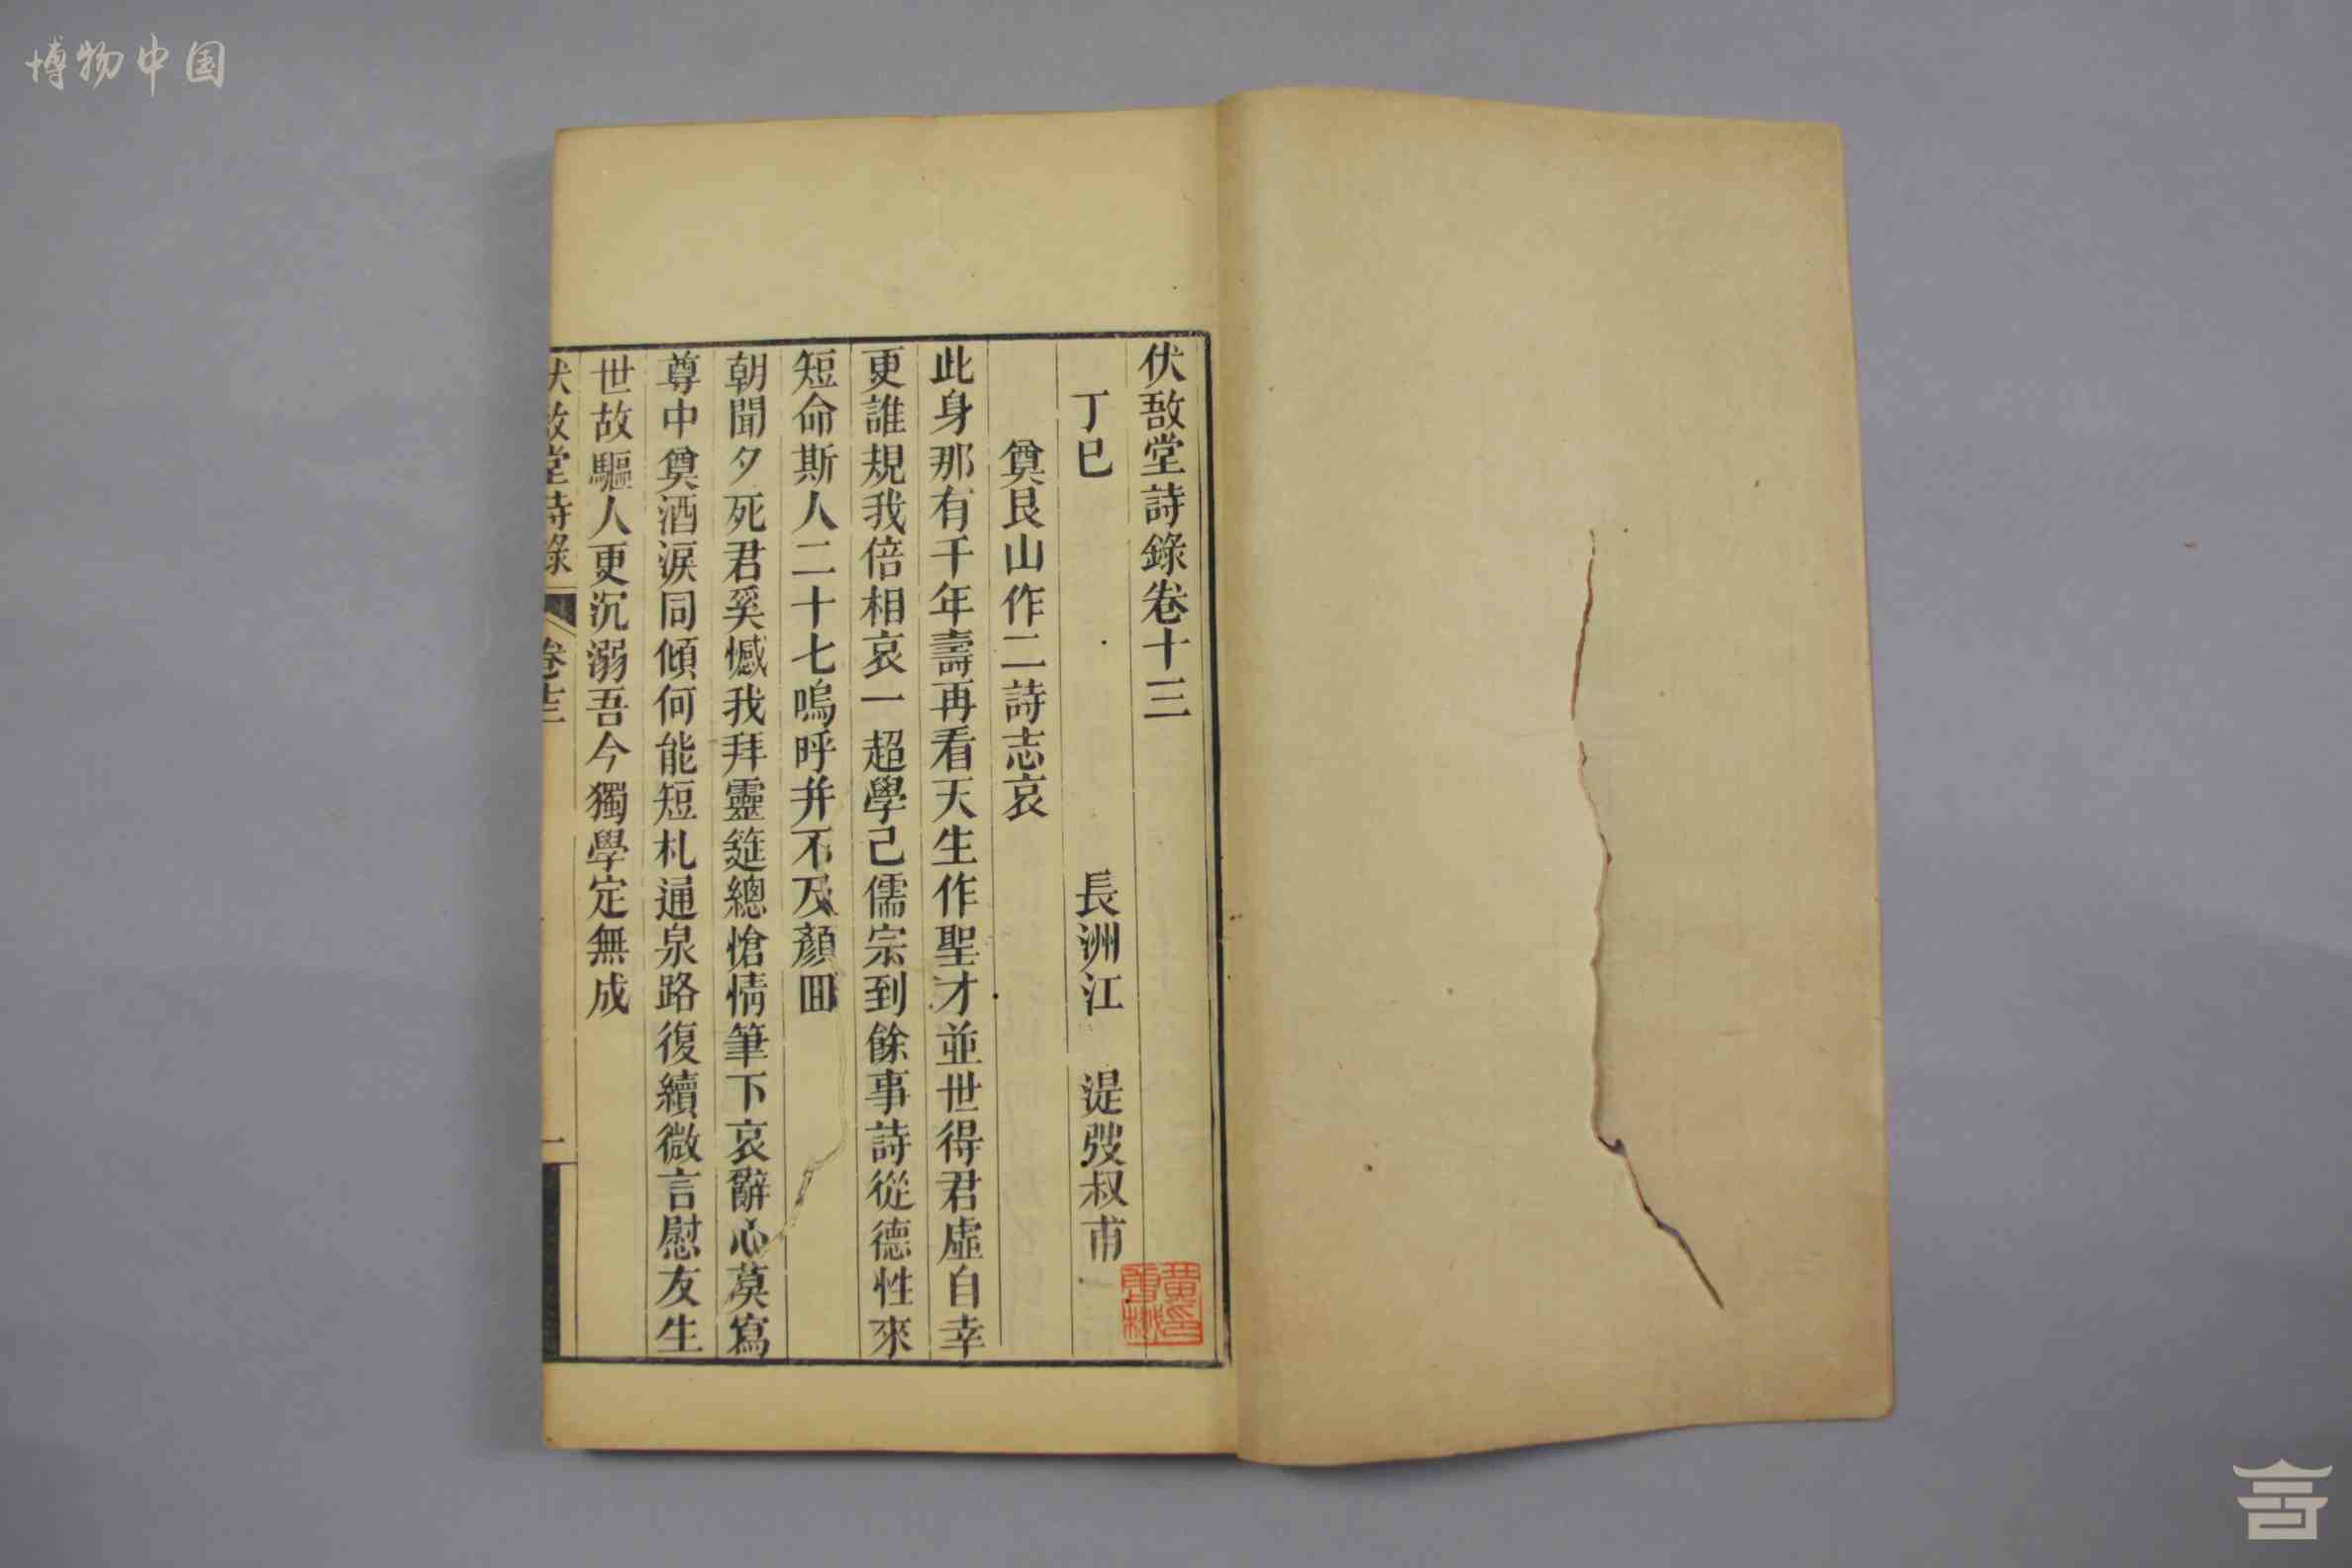 博物中国
伏敔堂詩錄卷十三
丁巳 長洲江 湜弢叔甫
奠艮山作二詩志哀
此身那有千年壽再看天生作聖才並世得君虛自幸
更誰規我倍相哀一超學己儒宗到餘事詩從德性來
短命斯人二十七嗚呼并不及顏回
朝聞夕死君奚憾我拜靈筵總愴情筆下哀辭心莫寫
尊中奠酒淚同傾何能短札通泉路復續微言慰友生
世故驅人更沉溺吾今獨學定無成
伏敔堂詩錄 卷十三 一